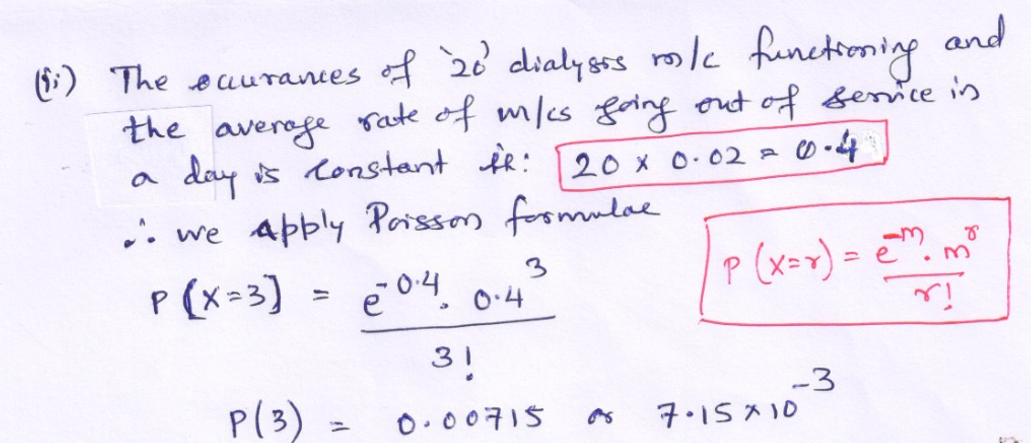 (ii) The occurances of '20' dialysis m/c functioning and
the average rate of m/cs going out of service in
a day is constant ie: 20 x 0.02 = 0.4
∴ we apply Poisson formulae
P (X=r) = e^-m . m^r / r!
P (X=3) = e^-0.4 . 0.4^3 / 3!
P(3) = 0.00715 or 7.15 x 10^-3